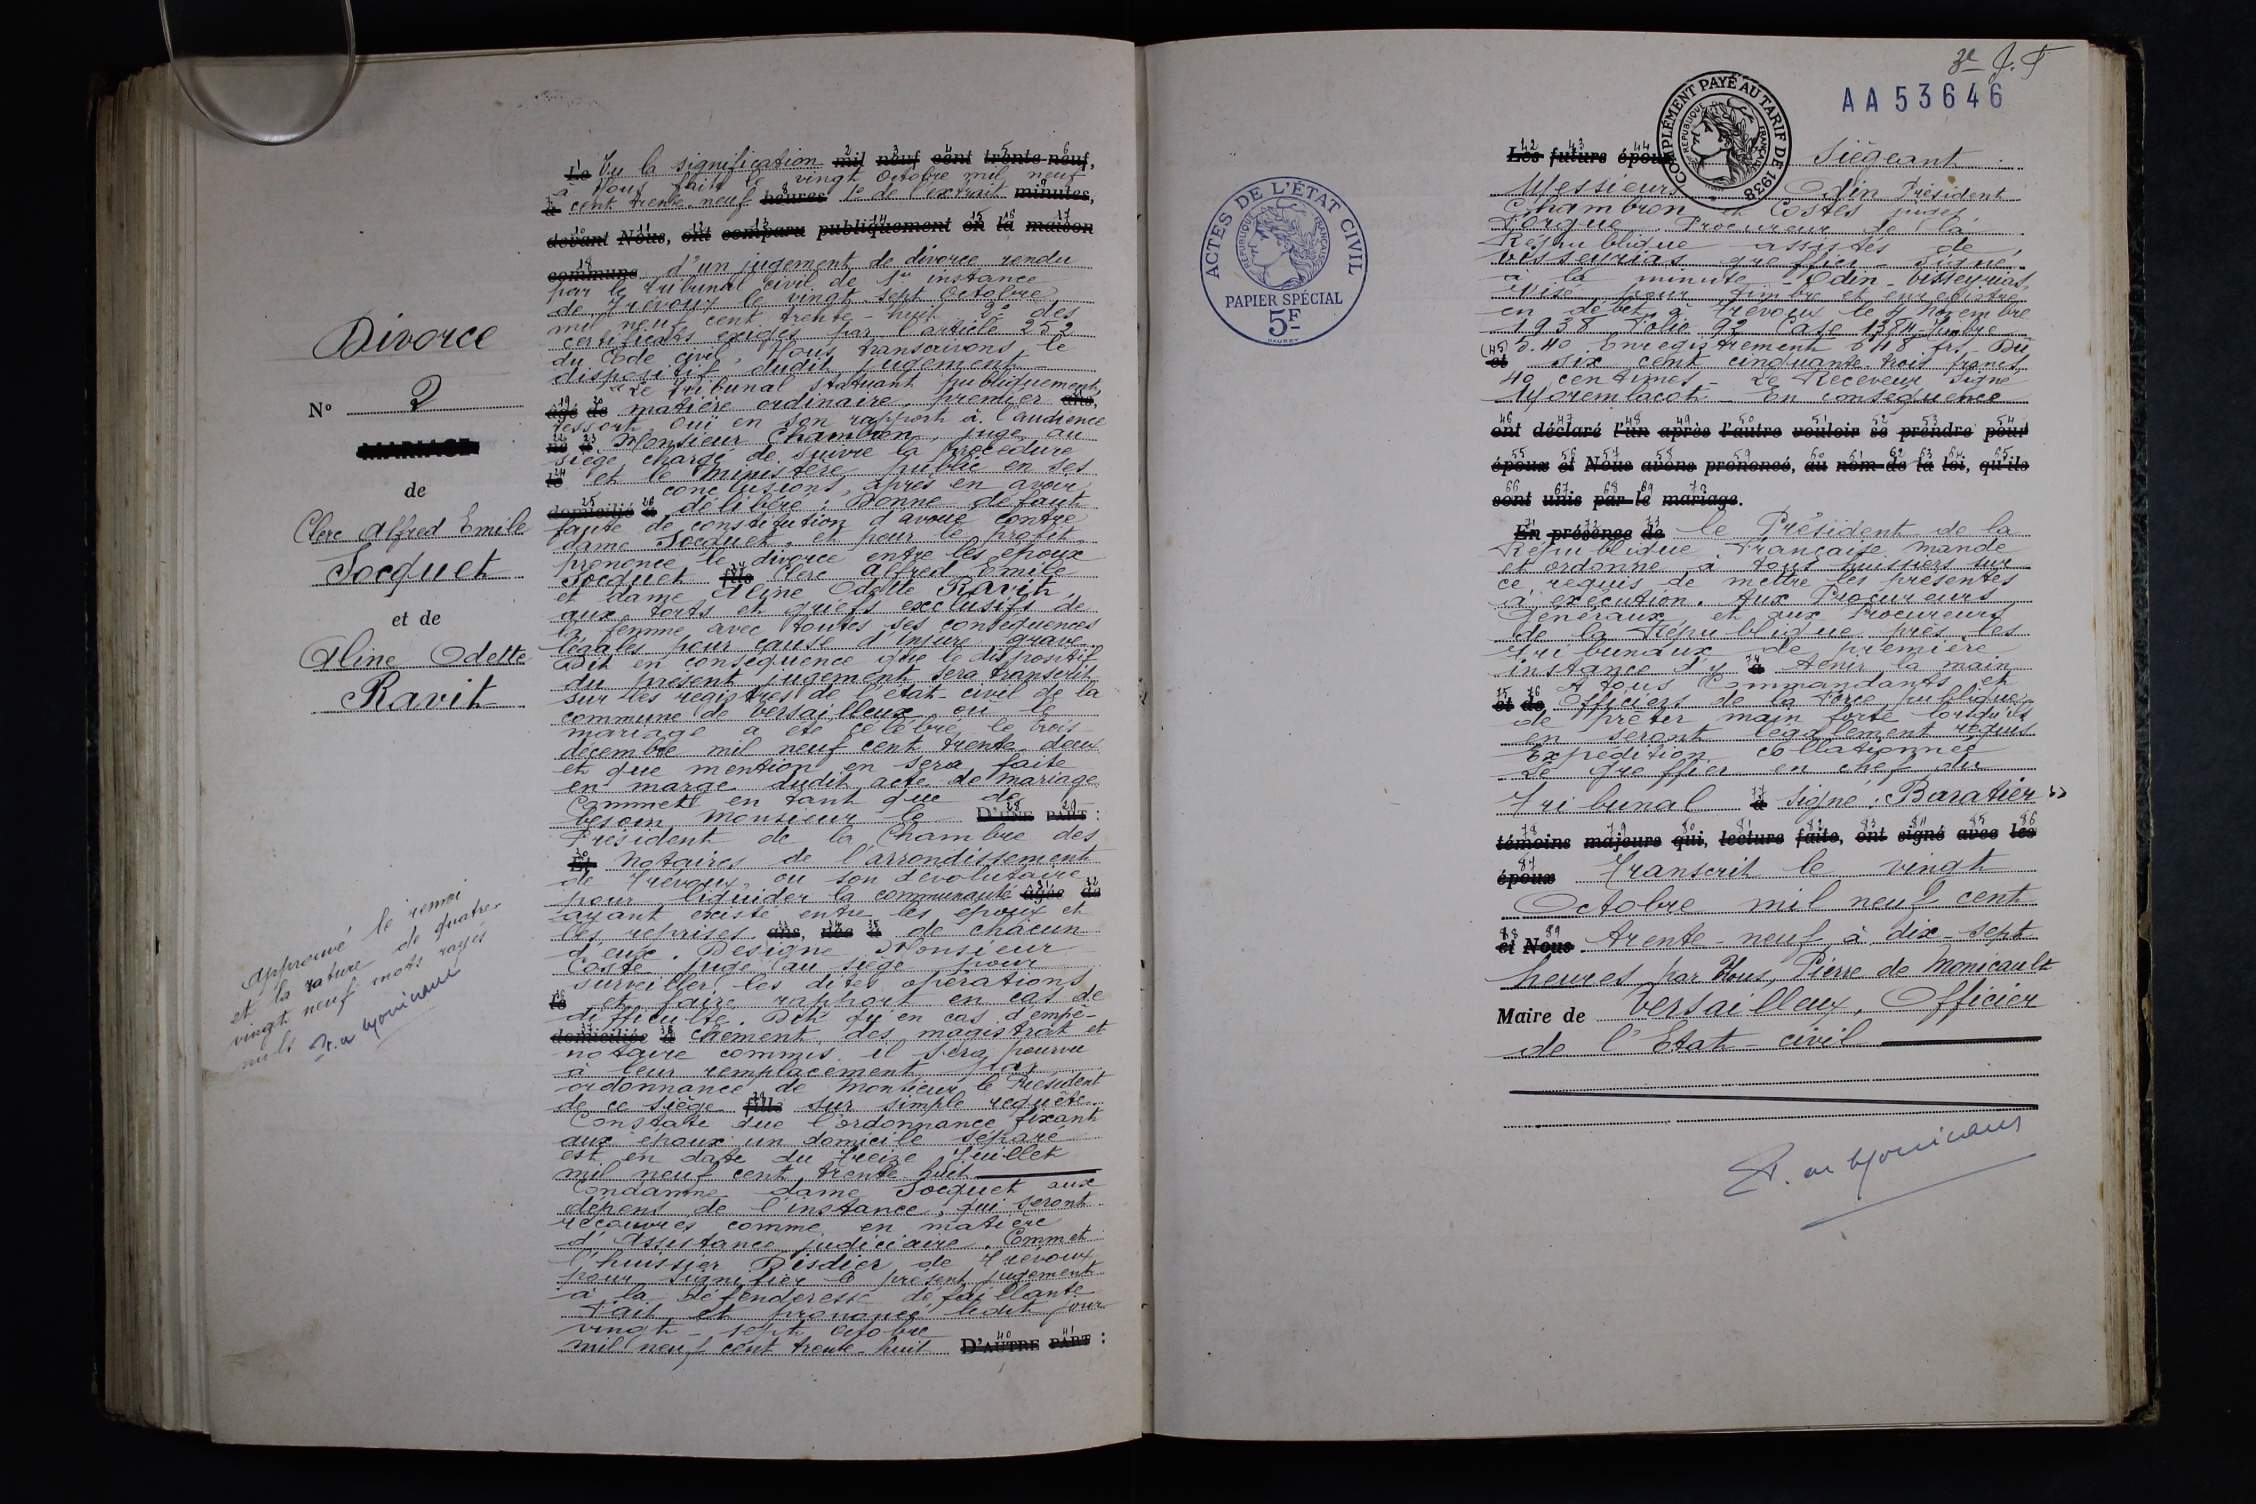 Divorce
N° 2
MARIAGE
de
Clerc Alfred Emile
Socquet
et de
Aline Odette
Ravit
approuvé le renvoi
et la rature de quatre-
vingt neuf mots rayés
nuls
Le Vu la signification mil neuf cent trente-neuf,
à Nous faite le vingt Octobre mil neuf
à cent trente-neuf heures 1° de l'extrait minutes,
devant Nous, ont comparu publiquement en la maison
commune d'un jugement de divorce rendu
par le tribunal civil de 1re instance
de Trévoux le vingt-sept Octobre
mil neuf cent trente-huit 2° des
certificats exigés par l'article 252
du Code civil, Nous transcrivons le
dispositif dudit jugement -
"Le Tribunal statuant publiquement,
âgé de matière ordinaire, premier ans,
ressort, ouï en son rapport à l'audience
né à Monsieur Chambron, juge au
siège chargé de suivre la procédure
le et le Ministère public en ses
conclusions, après en avoir
domicilié à délibéré; Donne défaut
faute de constitution d'avoué contre
dame Socquet, et pour le profit
prononce le divorce entre les époux
Socquet fils Clerc Alfred Emile
et dame Aline Odette Ravit,
aux torts et griefs exclusifs de
la femme avec toutes ses conséquences
légales pour cause d'injure grave.
Dit en conséquence que le dispositif
du présent jugement sera transcrit
sur les registres de l'état-civil de la
commune de Versailleux où le
mariage a été célébré le trois
décembre mil neuf cent trente-deux
et que mention en sera faite
en marge dudit acte de mariage
Commet en tant que de
besoin Monsieur le D'UNE PART :
Président de la Chambre des
Et Notaires de l'arrondissement
de Trévoux, ou son dévolutaire
pour liquider la communauté âgée de
ayant existé entre les époux et
les reprises ans, née à de chacun
d'eux. Désigne Monsieur
Coste juge au siège pour
surveiller les dites opérations
le et faire rapport en cas de
difficulté. Dit qu'en cas d'empê-
domiciliée à chement des magistrat et
notaire commis il sera pourvu
à leur remplacement par
ordonnance de Monsieur le Président
de ce siège fille sur simple requête.
Constate que l'ordonnance fixant
aux époux un domicile séparé
est en date du treize Juillet
mil neuf cent trente huit
Condamne dame Socquet aux
dépens de l'instance, qui seront
recouvrés comme en matière
d'Assistance judiciaire. Commet
l'huissier Disdier de Trévoux
pour signifier le présent jugement
à la défenderesse défaillante
Fait et prononcé ledit jour
vingt-sept Octobre
mil neuf cent trente-huit D'AUTRE PART :
ACTES DE L'ÉTAT CIVIL
RÉPUBLIQUE FRANÇAISE
PAPIER SPÉCIAL
5F
3e J. T
AA53646
COMPLÉMENT PAYÉ AU TARIF DE 1938
RÉPUBLIQUE FRANÇAISE
Les futurs époux Siégeant
Messieurs Odin Président
Chambron et Costes juges,
Forgue Procureur de la
République assistés de
Visseyrias greffier - Signé
à la minute - Odin - Visseyrias,
Visé pour timbre et enregistré
en débet à Trévoux le 4 Novembre
1938 Folio 92 Case 1384 - Timbre
(45) 5.40 Enregistrement 648 frs - Du
et six cent cinquante-trois francs
40 centimes - Le Receveur Signé
En conséquence
ont déclaré l'un après l'autre vouloir se prendre pour
époux et Nous avons prononcé, au nom de la loi, qu'ils
sont unis par le mariage.
En présence de le Président de la
République Française mande
et ordonne à tous huissiers sur
ce requis de mettre les présentes
à exécution. Aux Procureurs
Généraux et aux Procureurs
de la République près les
Tribunaux de première
instance d'y à tenir la main
A tous Commandants et
et de Officiers de la Force publique
de prêter main forte lorsqu'ils
en seront légalement requis
Expédition collationnée
Le greffier en chef du
Tribunal à signé : Baratier "
témoins majeurs qui, lecture faite, ont signé avec les
époux Transcrit le vingt
Octobre mil neuf cent
et Nous trente-neuf à dix-sept
heures par Nous, Pierre de Monicault
Maire de Versailleux, Officier
de l'Etat-civil
P. de Monicault